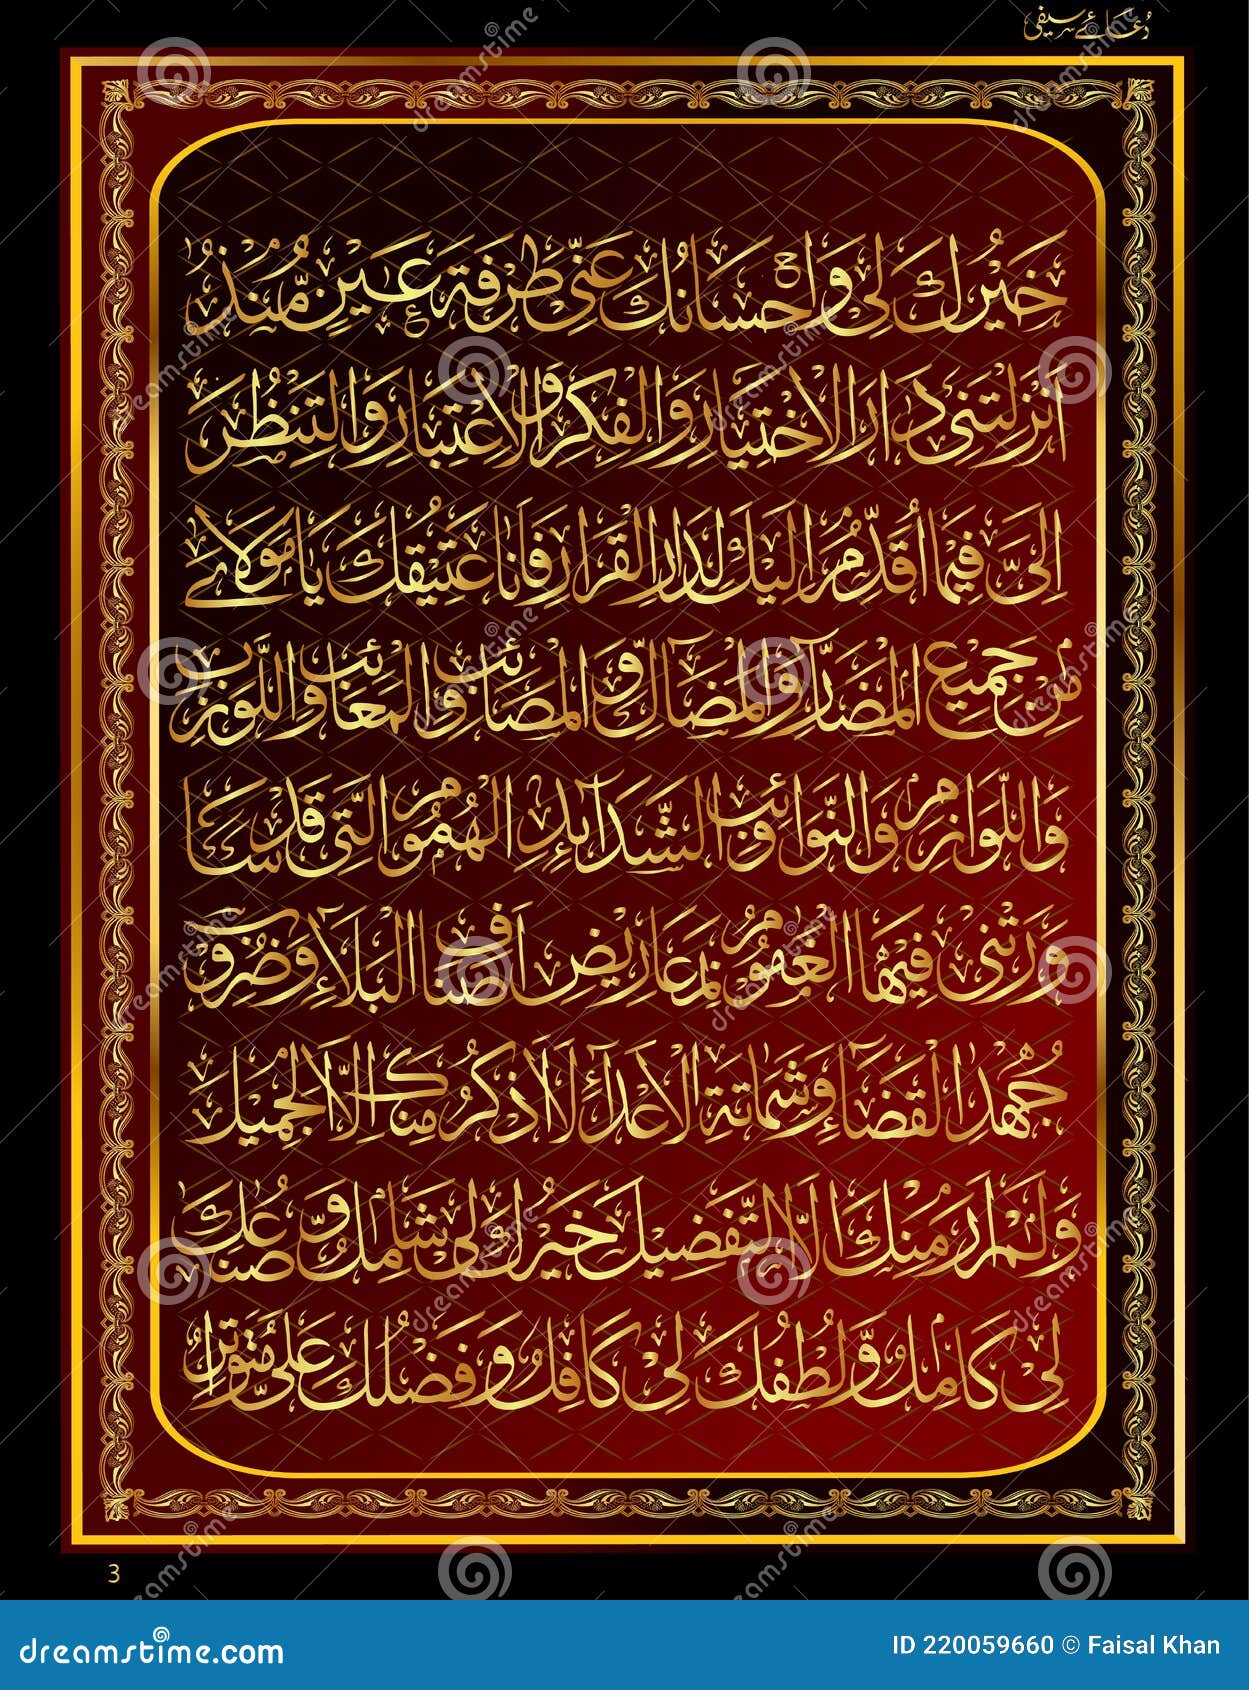 دُعَائے سیفی
خَيْرُكَ لِيْ وَاِحْسَانُكَ عَنِّيْ طَرْفَةَ عَيْنٍ مُّنْذُ
اَنْزَلْتَنِيْ دَارَ الْاِخْتِيَارِ وَالْفِكْرِ وَالْاِعْتِبَارِ وَالتَّنْظُرَ
اِلَيَّ فِيْمَا اُقَدِّمُ اِلَيْكَ لِدَارِ الْقَرَارِ فَاَنَا عَتِيْقُكَ يَا مَوْلَايَ
مِنْ جَمِيْعِ الْمَضَآرِّ وَالْمَضَآلِّ وَالْمَصَائِبِ وَالْمَعَائِبِ وَاللَّوَزِبِ
وَاللَّوَازِمِ وَالنَّوَائِبِ وَالشَّدَآئِدِ الْهُمُوْمِ الَّتِيْ قَدْ سَا
وَرَتْنِيْ فِيْهَا الْغُمُوْمُ بِمَعَارِيْضِ اَصْنَافِ الْبَلَآءِ وَضُرُوْبِ
جُهْدِ الْقَضَآءِ وَشَمَاتَةِ الْاَعْدَآءِ لَا اَذْكُرُ مِنْكَ اِلَّا الْجَمِيْلَ
وَلَمْ اَرَ مِنْكَ اِلَّا التَّفْضِيْلَ خَيْرُكَ لِيْ شَامِلٌ وَّصُنْعُكَ
لِيْ كَامِلٌ وَّلُطْفُكَ لِيْ كَافِلٌ وَفَضْلُكَ عَلَيَّ مُتَوَاتِرٌ
3
dreamstime.com
ID 220059660 © Faisal Khan